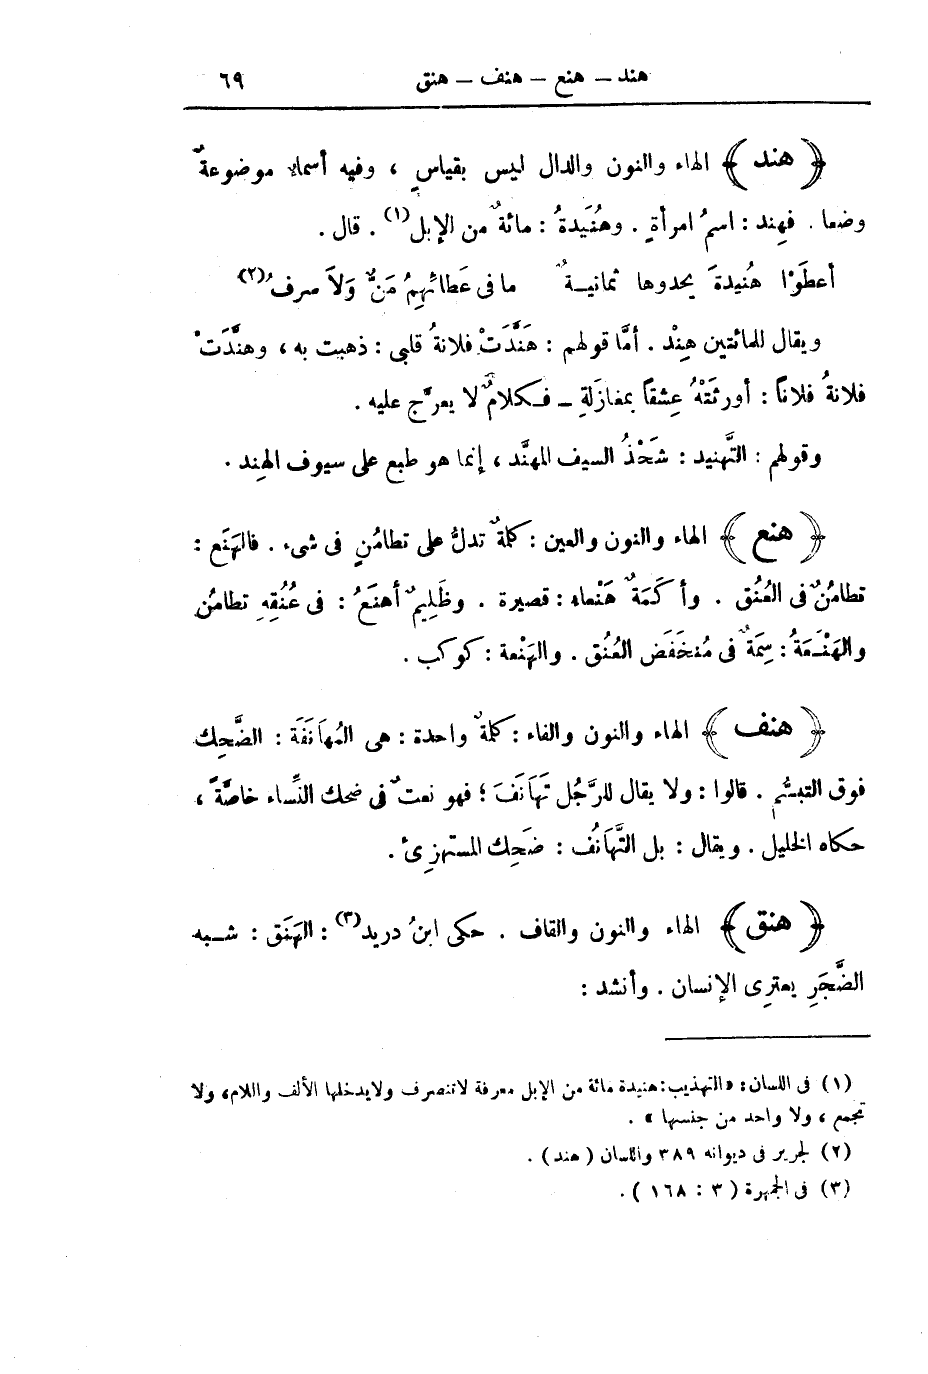 هند – هنع – هنف – هنق ٦٩
﴿ هند ﴾ الهاء والنون والدال ليس بقياسٍ ، وفيه أسماءٌ موضوعةٌ
وضعا . فهِند : اسمُ امرأةٍ . وهُنَيدةُ : مائةٌ من الإبل(١) . قال .
أعطَوْا هُنيدةَ يحدوها ثمانيــةٌ ما فى عَطائهِمُ مَنٌّ وَلاَ سرفُ(٢)
ويقال للمائتين هِنْد . أمَّا قولهم : هَنَّدَتْ فلانةُ قلبى : ذهبت به ، وهنَّدَتْ
فلانةُ فلاناً : أورثَتْهُ عِشقاً بمغازَلةِ – فكلامٌ لا يعرَّج عليه .
وقولهم : التَّهنيد : شَحْذُ السيف المهنَّد ، إنما هو طبع على سيوف الهِند .
﴿ هنع ﴾ الهاء والنون والعين : كلمةٌ تدلُّ على تطامُنٍ فى شىء . فالهَنَع :
تطامُنٌ فى العُنُق . وأكَمَةٌ هَنْعاء : قصيرة . وظَلِيمٌ أهنَعُ : فى عُنُقِهِ تطامُن
والهَنْــعَةُ : سِمَةٌ فى مُنخَفَض العُنُق . والهَنْعة : كوكب .
﴿ هنف ﴾ الهاء والنون والفاء : كلمةٌ واحدة : هى المُهَانَفَة : الضَّحِك
فوق التبسُّم . قالوا : ولا يقال للرَّجُل تَهَانَفَ ؛ فهو نعتٌ فى ضحك النِّساء خاصَّةً ،
حكاه الخليل . ويقال : بل التَّهَانُف : ضَحِك المستهزِئ .
﴿ هنق ﴾ الهاء والنون والقاف . حكى ابنُ دريد(٣) : الهَنَق : شــبه
الضَّجَرِ يعترِى الإنسان . وأنشد :
(١) فى اللسان : « التهذيب : هنيدة مائة من الإبل معرفة لا تنصرف ولا يدخلها الألف واللام ، ولا
تجمع ، ولا واحد من جنسها » .
(٢) لجرير فى ديوانه ٣٨٩ واللسان ( هند ) .
(٣) فى الجمهرة ( ٣ : ١٦٨ ) .